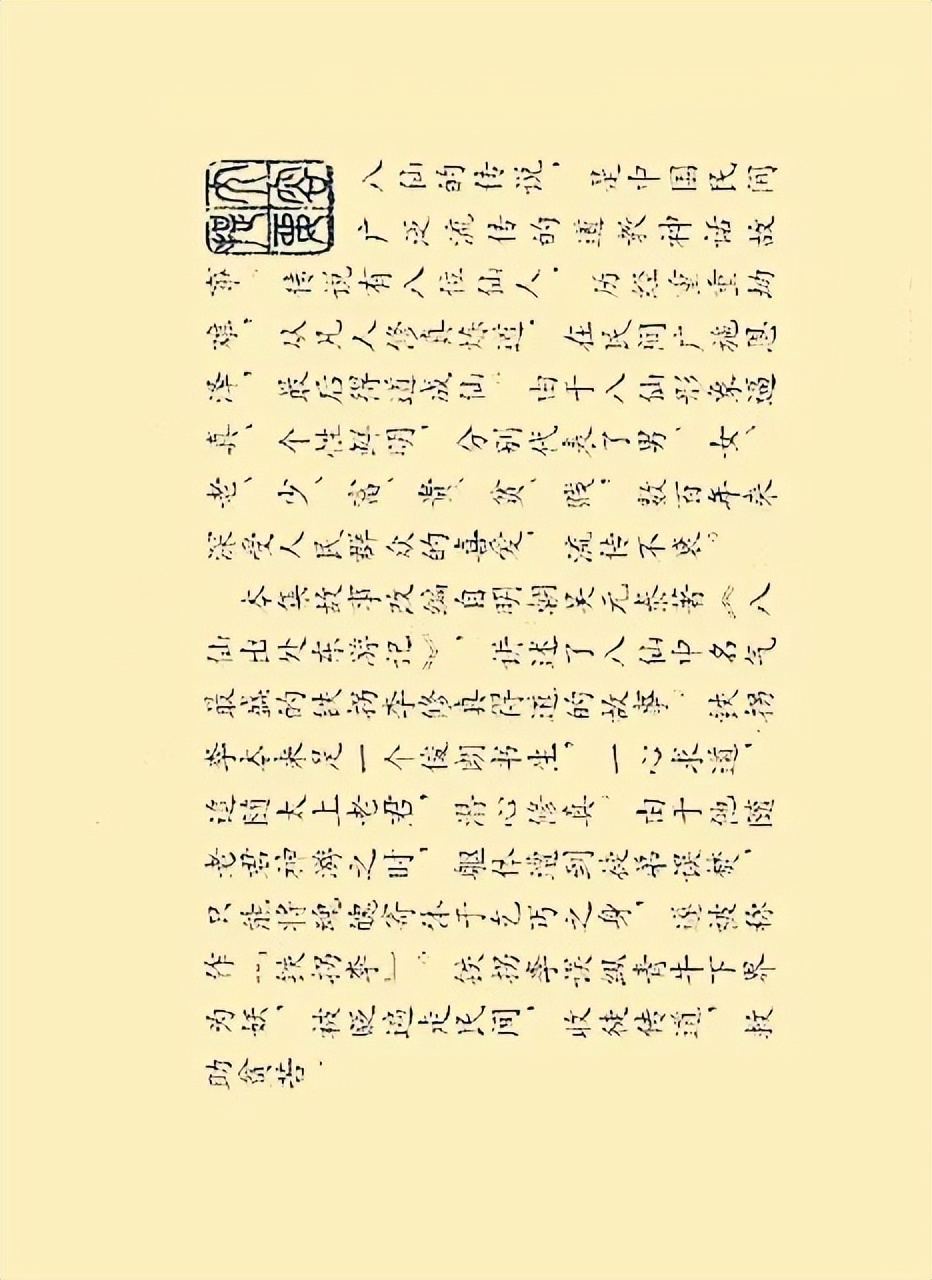 内容
提要
八仙的传说，是中国民间
广泛流传的道教神话故
事。传说有八位仙人，历经重重劫
难，从凡人修真炼道，在民间广施恩
泽，最后得道成仙。由于八仙形象逼
真、个性鲜明，分别代表了男、女、
老、少、富、贵、贫、贱，数百年来
深受人民群众的喜爱，流传不衰。
本集故事改编自明朝吴元泰著《八
仙出处东游记》，讲述了八仙中名气
最盛的铁拐李修真得道的故事。铁拐
李本来是一个俊朗书生，一心求道，
追随太上老君，潜心修真。由于他随
老君神游之时，躯体遭到徒弟误焚，
只能将魂魄寄休于乞丐之身，遂被称
作「铁拐李」。铁拐李误纵青牛下界
为妖，被贬谪走民间，收徒传道，救
助贫苦。